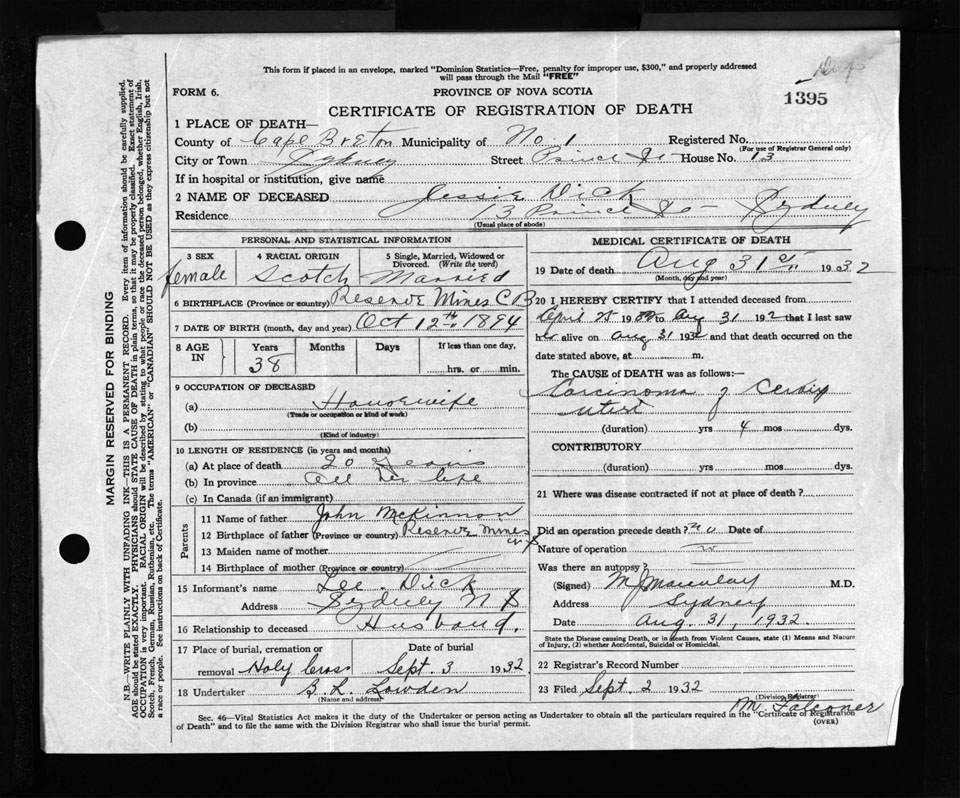 This form if placed in an envelope, marked "Dominion Statistics—Free, penalty for improper use, $300," and properly addressed
will pass through the Mail "FREE"
FORM 6. PROVINCE OF NOVA SCOTIA 1395
CERTIFICATE OF REGISTRATION OF DEATH
1 PLACE OF DEATH—
County of Cape Breton Municipality of No. 1 Registered No.
(For use of Registrar General only)
City or Town Sydney Street Prince St House No. 13
If in hospital or institution, give name
2 NAME OF DECEASED Jessie Dick
Residence 13 Prince St — Sydney
(Usual place of abode)
PERSONAL AND STATISTICAL INFORMATION
3 SEX 4 RACIAL ORIGIN 5 Single, Married, Widowed or
Divorced. (Write the word)
female Scotch Married
6 BIRTHPLACE (Province or country) Reserve Mines C B
7 DATE OF BIRTH (month, day and year) Oct 12th 1894
8 AGE IN Years Months Days If less than one day,
38 hrs. or min.
9 OCCUPATION OF DECEASED
(a) Housewife
(Trade or occupation or kind of work)
(b)
(Kind of industry)
10 LENGTH OF RESIDENCE (in years and months)
(a) At place of death 20 years
(b) In province all her life
(c) In Canada (if an immigrant)
Parents
11 Name of father John McKinnon
12 Birthplace of father (Province or country) Reserve Mines
13 Maiden name of mother
14 Birthplace of mother (Province or country)
15 Informant's name Lee Dick
Address Sydney N S
16 Relationship to deceased Husband.
17 Place of burial, cremation or Date of burial
removal Holy Cross Sept. 3 1932
18 Undertaker B. L. Lowden
(Name and address)
MEDICAL CERTIFICATE OF DEATH
19 Date of death Aug 31st 1932
(Month, day and year)
20 I HEREBY CERTIFY that I attended deceased from
April 19 to Aug 31 192 that I last saw
h alive on Aug 31 19 and that death occurred on the
date stated above, at m.
The CAUSE of DEATH was as follows:—
Carcinoma of Cervix
uteri
(duration) yrs 4 mos dys.
CONTRIBUTORY
(duration) yrs. mos. dys.
21 Where was disease contracted if not at place of death?
Did an operation precede death? no Date of
Nature of operation
Was there an autopsy?
(Signed) M.D.
Address Sydney
Date Aug. 31, 1932.
State the Disease causing Death, or in death from Violent Causes, state (1) Means and Nature
of Injury, (2) whether Accidental, Suicidal or Homicidal.
22 Registrar's Record Number
23 Filed Sept. 2 1932
(Division Registrar)
M. Falconer
Sec. 46—Vital Statistics Act makes it the duty of the Undertaker or person acting as Undertaker to obtain all the particulars required in the "Certificate of Registration
of Death" and to file the same with the Division Registrar who shall issue the burial permit. (OVER)
MARGIN RESERVED FOR BINDING
N.B.—WRITE PLAINLY WITH UNFADING INK—THIS IS A PERMANENT RECORD. Every item of information should be carefully supplied.
AGE should be stated EXACTLY. PHYSICIANS should STATE CAUSE OF DEATH in plain terms, so that it may be properly classified. Exact statement of
OCCUPATION is very important. RACIAL ORIGIN will be described by stating to what people or race the deceased person belonged, whether English, Irish,
Scotch, French, German, Russian, Ruthenian, etc. The terms "AMERICAN" or "CANADIAN" SHOULD NOT BE USED as they express citizenship but not
a race or people. See instructions on back of Certificate.